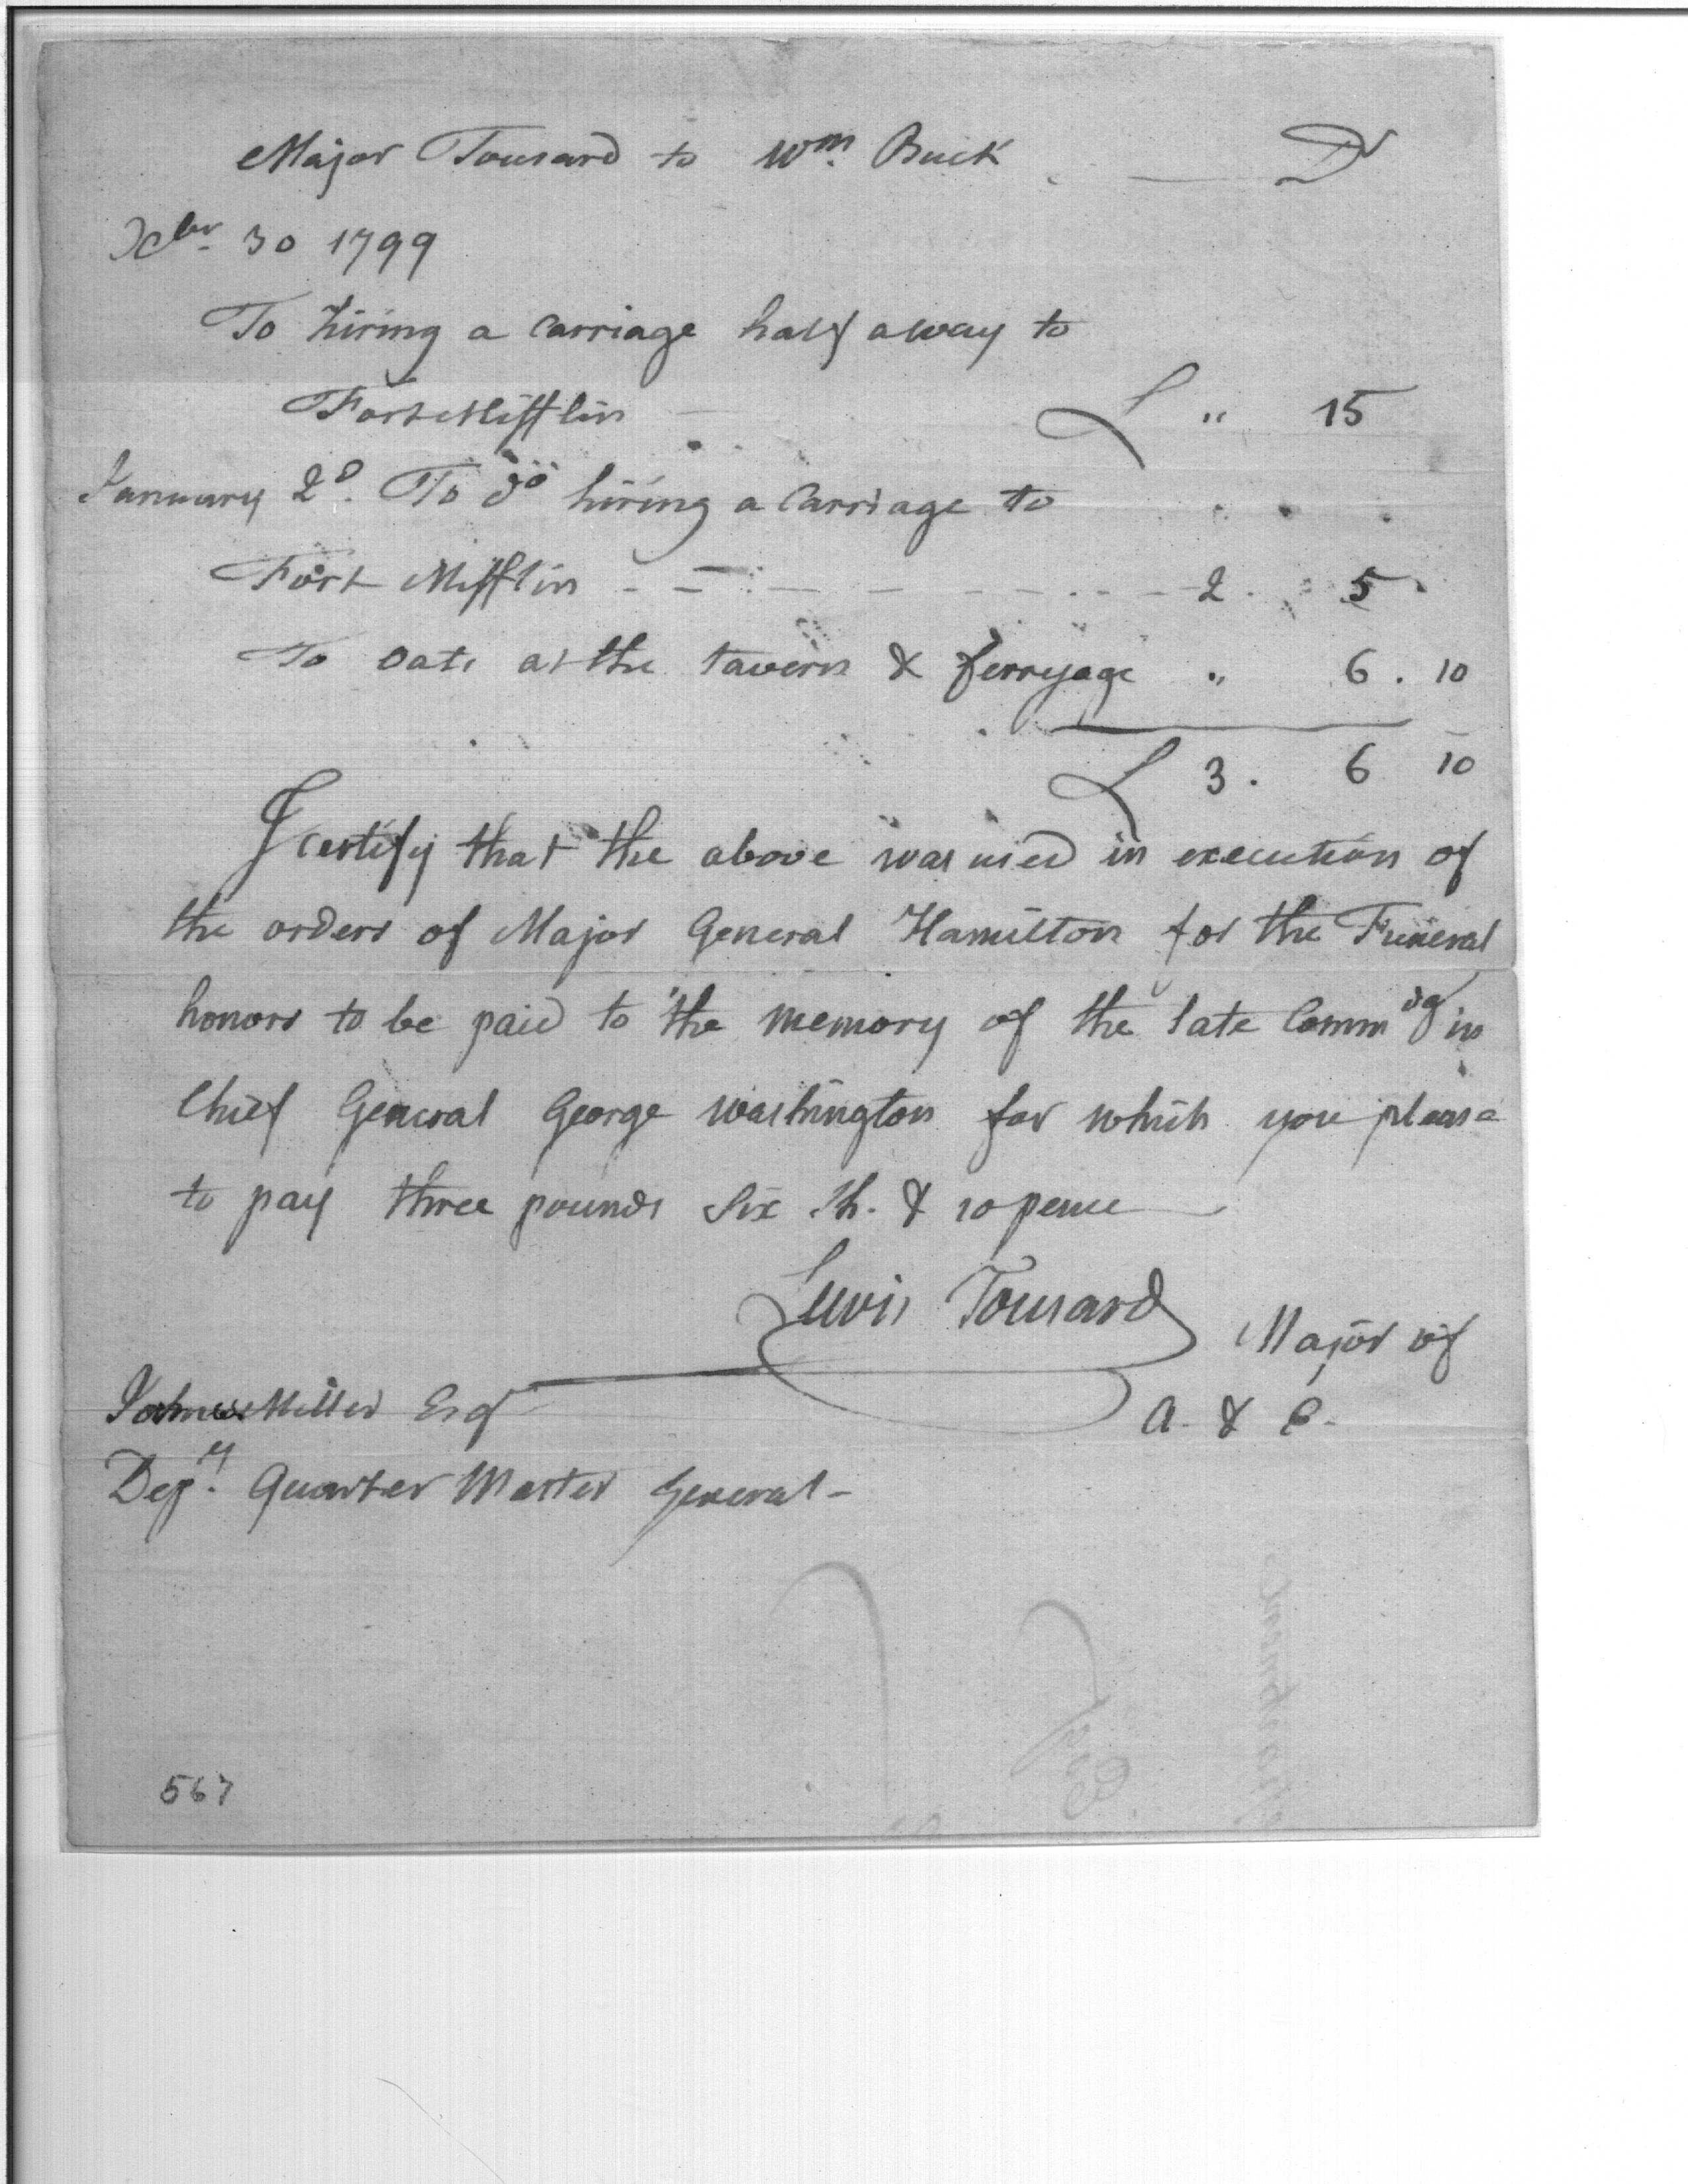 Major Tousard to Wm. Buck Dr
Xber 30 1799
To hiring a Carriage half a way to
Fort Mifflin L " 15
January 2d. To do hiring a Carriage to
Fort Mifflin - - - - - - - - 2. 5
To Oats at the tavern & ferryage " 6. 10
L 3. 6 10
I certify that the above was used in execution of
the orders of Major General Hamilton for the Funeral
honors to be paid to the memory of the late Commdg in
Chief General George Washington for which you please
to pay three pounds Six Sh. & 10 pence
Lewis Tousard Major of
A. & E.
Miller Esq
Depy. Quarter Master General -
567